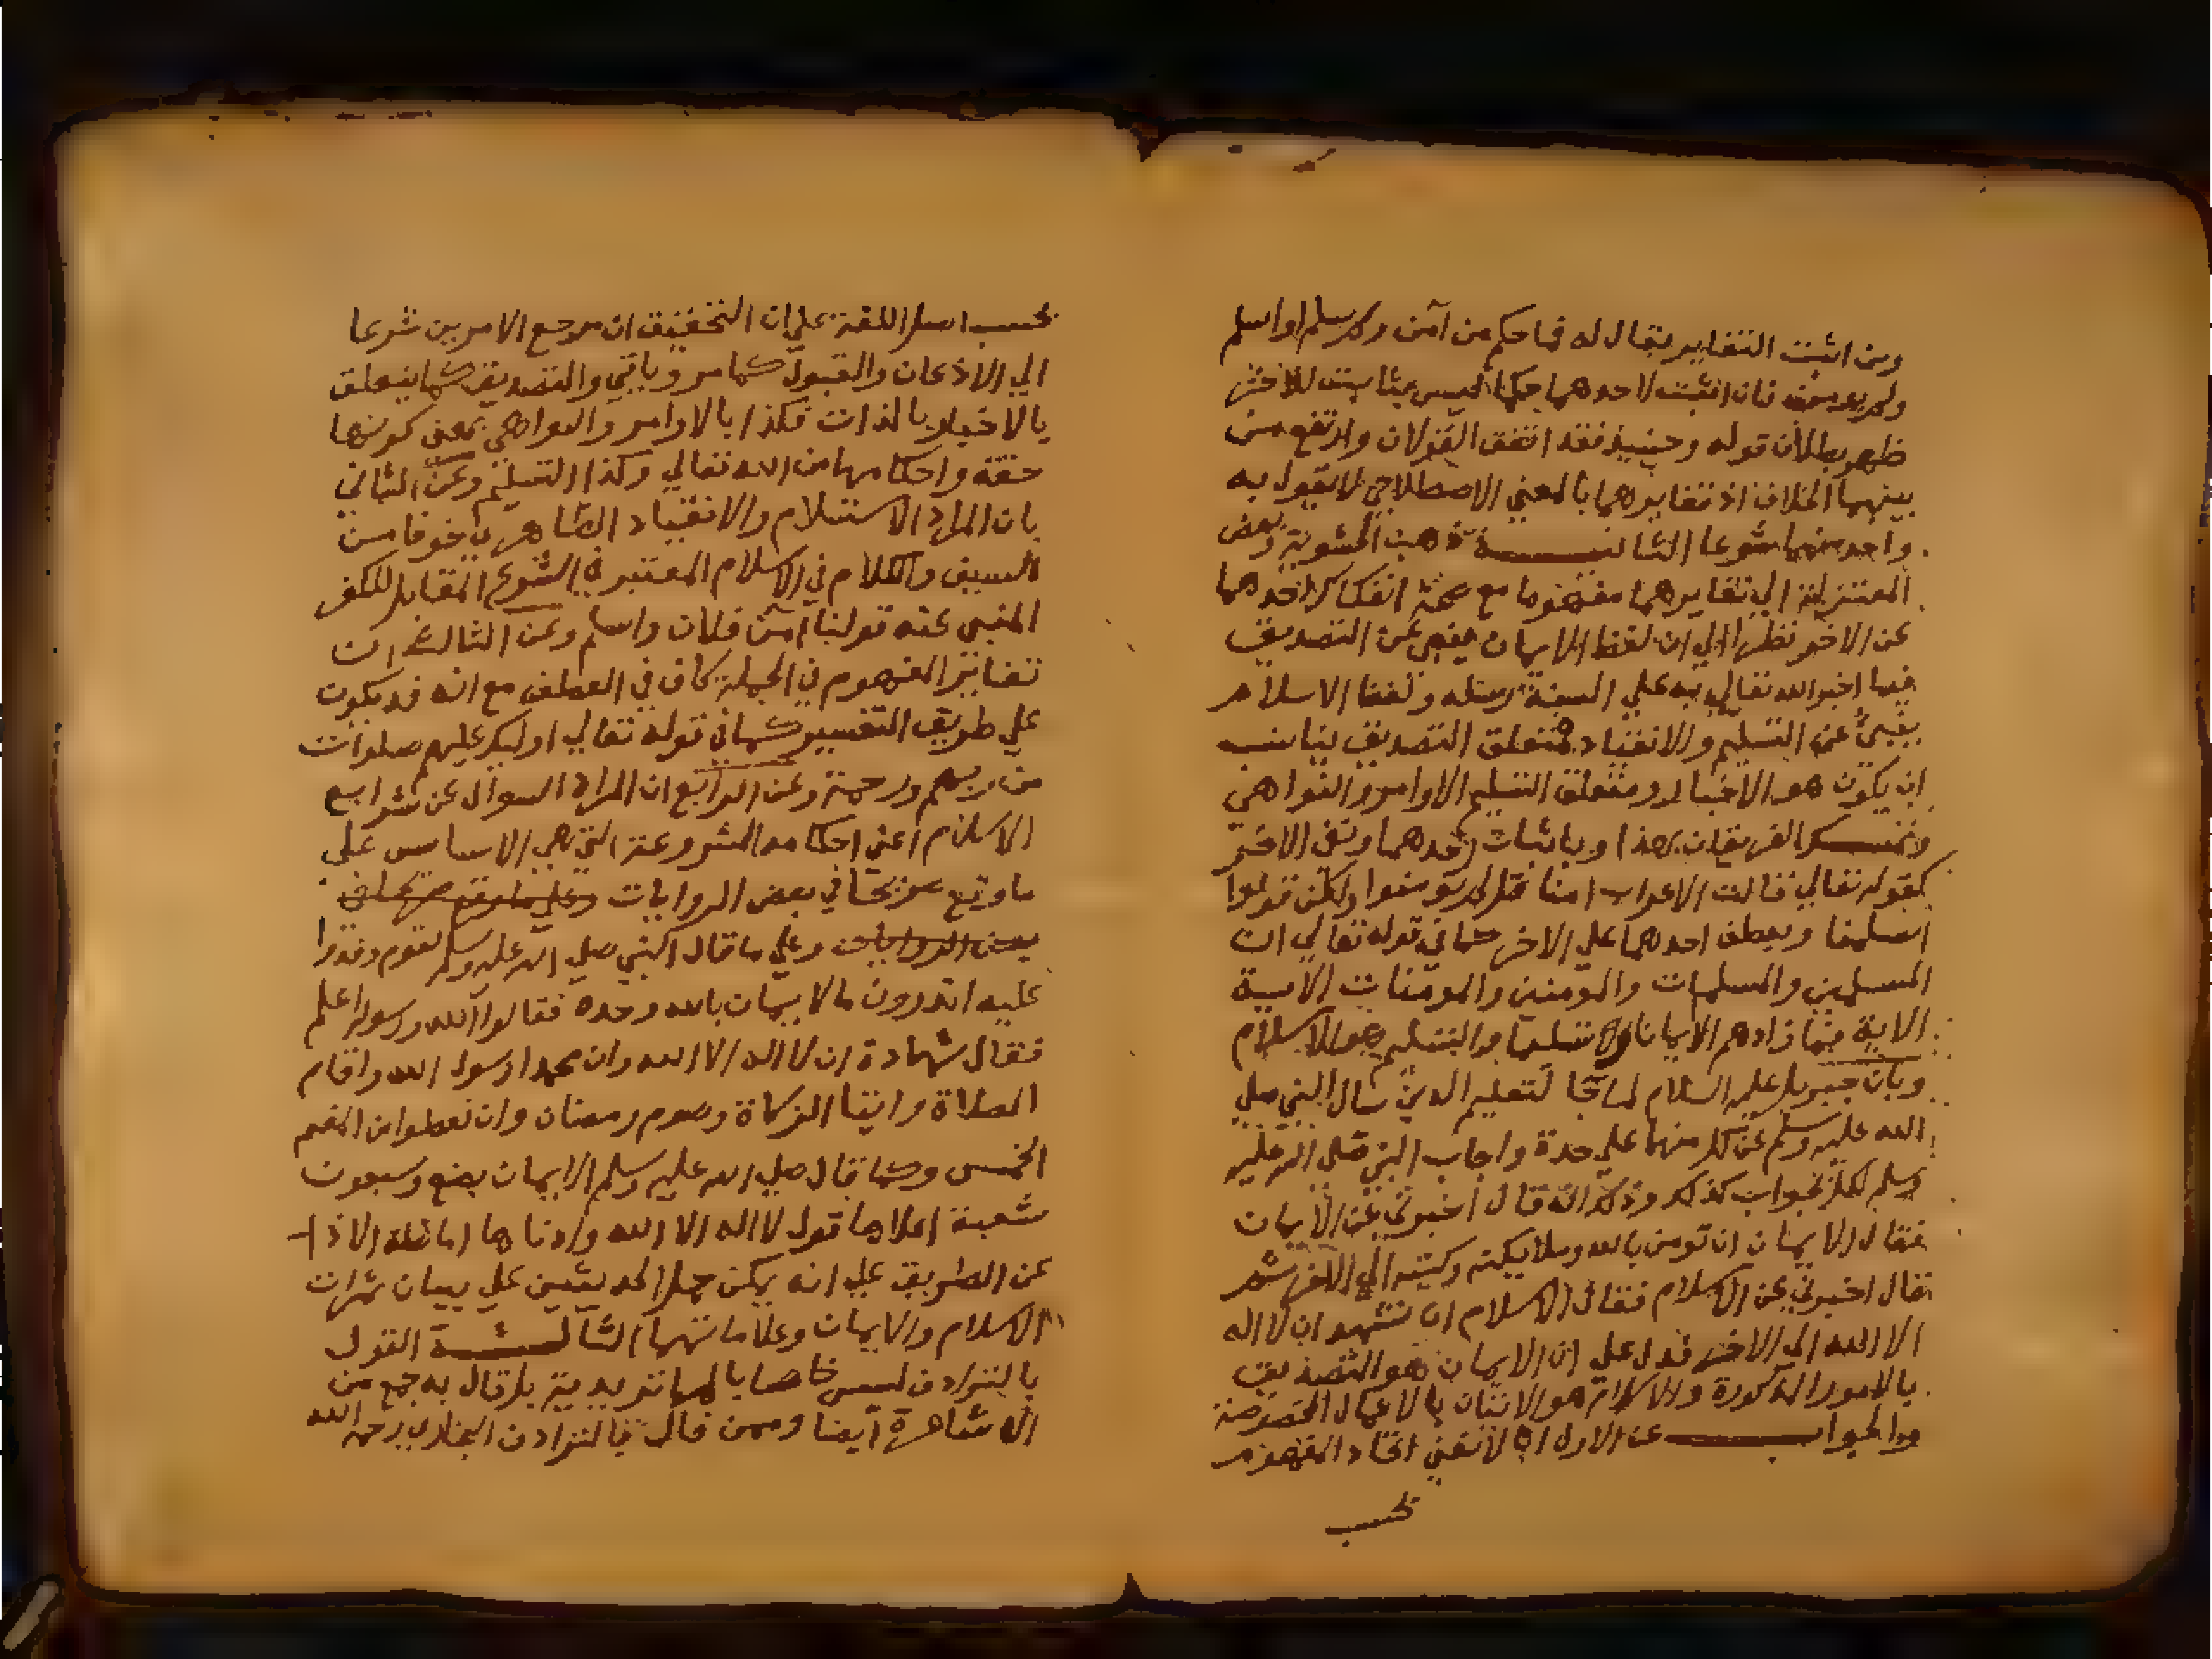 ومن اثبت التغاير يقال له فما حكم من آمن ولم يسلم او اسلم
ولم يومن فان اثبت لاحدهما حكما ليس بثابت للاخر
ظهر بطلان قوله وحينيذ فقد اتفق القولان وارتفع من
بينهما الخلاف اذ تغايرهما بالمعني الاصطلاحي لا يقول به
واحد منهما شرعا الثانية ذهبت الحشوية وبعض
المعتزلة الي تغايرهما مفهوما مع صحة انفكاك احدهما
عن الاخر نظرا الي ان لفظ الايمان ينبي عن التصديق
فيما اخبر الله تعالي به علي السنة رسله ولفظ الاسلام
ينبئ عن التسليم والانقياد فمتعلق التصديق يناسب
ان يكون هو الاخبار ومتعلق التسليم الاوامر والنواهي
وتمسك الفريقان بهذا وباثبات احدهما ونفي الاخر
كقوله تعالي قالت الاعراب امنا قل لم تومنوا ولكن قولوا
اسلمنا وبعطف احدهما علي الاخر كما في قوله تعالي ان
المسلمين والمسلمات والمومنين والمومنات الاية
الاية فما زادهم الا ايمانا وتسليما والتسليم هو الاسلام
وبان جبريل عليه السلام لما جا لتعليم الدين سال النبي صلي
الله عليه وسلم عن كل منهما علي حدة واجاب النبي صلي الله عليه
وسلم لكل بجواب كذلك وذلك انه قال اخبرني عن الايمان
فقال الايمان ان تومن بالله وملايكته وكتبه الي الاخر ثم
قال اخبرني عن الاسلام فقال الاسلام ان تشهد ان لا اله
الا الله الي الاخر فدل علي ان الايمان هو التصديق
بالامور المذكورة والاسلام هو الاتيان بالاعمال المخصوصة
والجواب عن الاول انا لا نعني اتحاد المفهوم
بحسب
بحسب اصل اللغة علي ان التحقيق ان مرجع الامرين شرعا
الي الاذعان والقبول كما مر وياتي والتصديق كما يتعلق
بالاخبار بالذات فكذا بالاوامر والنواهي بمعني كونها
حقة واحكامها من الله تعالي وكذا التسليم وعن الثاني
بان المراد الاستسلام والانقياد الظاهري خوفا من
السيف والكلام في الاسلام المعتبر في الشرع المقابل للكفر
المنبي عنه قولنا آمن فلان واسلم وعن الثالث ان
تغاير المفهوم في الجملة كاف في العطف مع انه قد يكون
علي طريق التفسير كما في قوله تعالي اوليك عليهم صلوات
من ربهم ورحمة وعن الرابع ان المراد السوال عن شرايع
الاسلام اعني احكامه المشروعة التي هي الاساس علي
ما وقع صريحا في بعض الروايات وعلي ما وقع صريحا في
بعض الروايات وعلي ما قال النبي صلي الله عليه وسلم لقوم وفدوا
عليه اتدرون ما الايمان بالله وحده فقالوا الله ورسوله اعلم
فقال شهادة ان لا اله الا الله وان محمدا رسول الله واقام
الصلاة وايتا الزكاة وصوم رمضان وان تعطوا من المغنم
الخمس وكما قال صلي الله عليه وسلم الايمان بضع وسبعون
شعبة اعلاها قول لا اله الا الله وادناها اماطة الاذا
عن الطريق علي انه يمكن حمل الحديثين علي بيان ثمرات
الاسلام والايمان وعلاماتهما الثالثة القول
بالترادف ليس خاصا بالماتريدية بل قال به جمع من
الاشاعرة ايضا وممن قال بالترادف البخاري رحمه الله